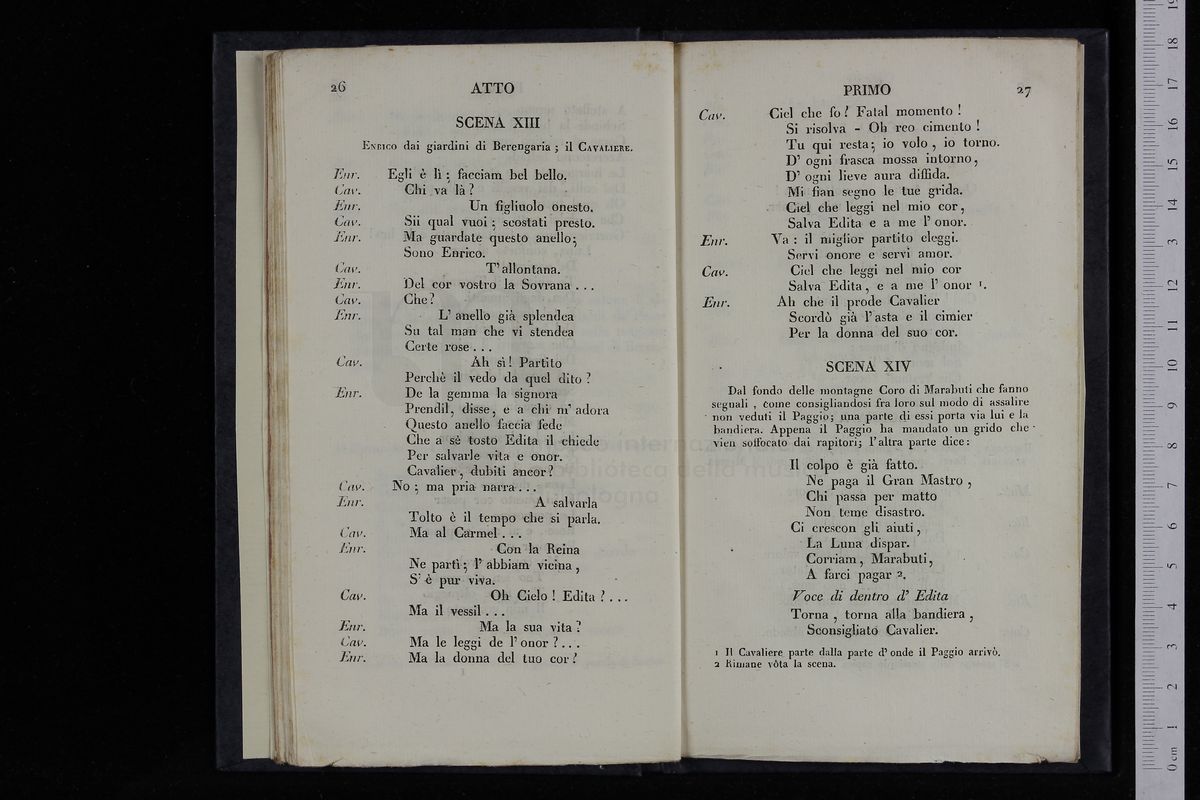 26 ATTO
SCENA XIII
ENRICO dai giardini di Berengaria ; il CAVALIERE.
Enr. Egli è lì ; facciam bel bello.
Cav. Chi va là ?
Enr. Un figliuolo onesto.
Cav. Sii qual vuoi ; scostati presto.
Enr. Ma guardate questo anello ;
Sono Enrico.
Cav. T' allontana.
Enr. Del cor vostro la Sovrana . . .
Cav. Che ?
Enr. L' anello già splendea
Su tal man che vi stendea
Certe rose . . .
Cav. Ah sì ! Partito
Perchè il vedo da quel dito ?
Enr. De la gemma la signora
Prendil, disse, e a chi m' adora
Questo anello faccia fede
Che a sè tosto Edita il chiede
Per salvarle vita e onor.
Cavalier, dubiti ancor ?
Cav. No ; ma pria narra . . .
Enr. A salvarla
Tolto è il tempo che si parla.
Cav. Ma al Carmel . . .
Enr. Con la Reina
Ne partì ; l' abbiam vicina ,
S' è pur viva.
Cav. Oh Cielo ! Edita ? . . .
Ma il vessil . . .
Enr. Ma la sua vita ?
Cav. Ma le leggi de l' onor ? . . .
Enr. Ma la donna del tuo cor ?
PRIMO 27
Cav. Ciel che fo ? Fatal momento !
Si risolva - Oh reo cimento !
Tu qui resta ; io volo , io torno.
D' ogni frasca mossa intorno ,
D' ogni lieve aura diffida.
Mi fian segno le tue grida.
Ciel che leggi nel mio cor ,
Salva Edita e a me l' onor.
Enr. Va : il miglior partito eleggi.
Servi onore e servi amor.
Cav. Ciel che leggi nel mio cor
Salva Edita , e a me l' onor 1.
Enr. Ah che il prode Cavalier
Scordò già l' asta e il cimier
Per la donna del suo cor.
SCENA XIV
Dal fondo delle montagne Coro di Marabuti che fanno
segnali , come consigliandosi fra loro sul modo di assalire
non veduti il Paggio ; una parte di essi porta via lui e la
bandiera. Appena il Paggio ha mandato un grido che
vien soffocato dai rapitori ; l' altra parte dice :
Il colpo è già fatto.
Ne paga il Gran Mastro ,
Chi passa per matto
Non teme disastro.
Ci crescon gli aiuti ,
La Luna dispar.
Corriam , Marabuti ,
A farci pagar 2.
Voce di dentro d' Edita
Torna , torna alla bandiera ,
Sconsigliato Cavalier.
1 Il Cavaliere parte dalla parte d' onde il Paggio arrivò.
2 Rimane vôta la scena.